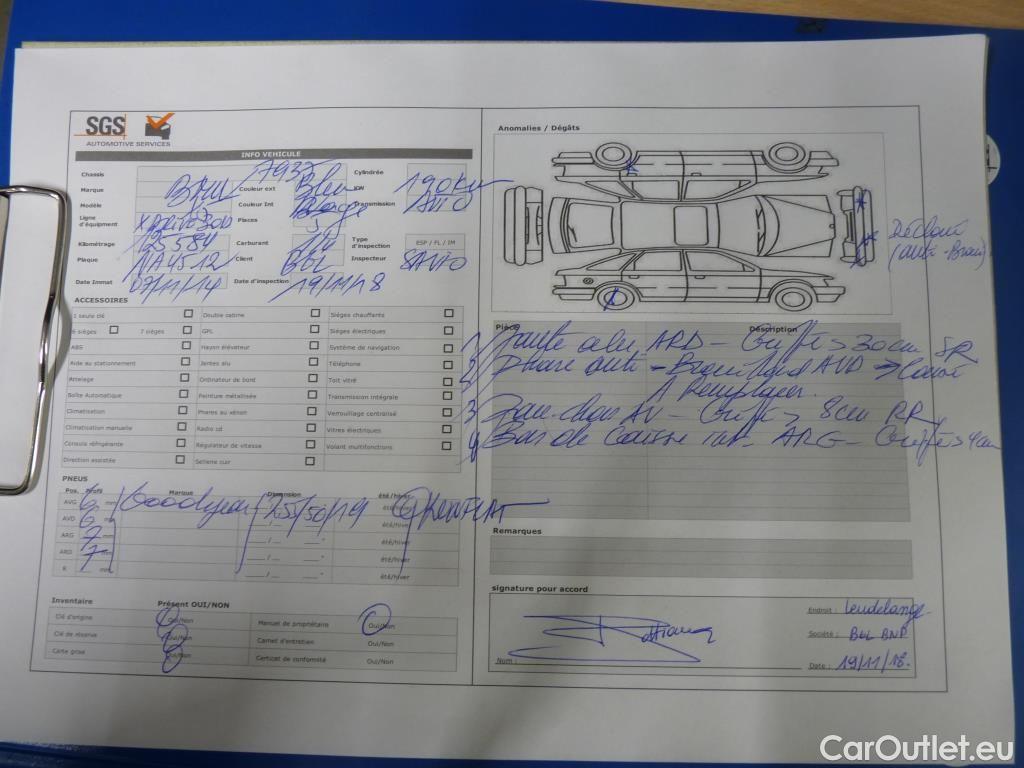 SGS
AUTOMOTIVE SERVICES
INFO VEHICULE
Chassis 7933 Cylindrée
Marque BMW Couleur ext Bleu KW 190KW
Modèle Couleur Int Transmission AUTO
Ligne d'équipement Places 5
Kilométrage 125584 Carburant Type d'inspection ESP / FL / IM
Plaque NA4512 Client BGL Inspecteur
Date Immat 07/11/14 Date d'inspection 19/11/18
ACCESSOIRES
1 seule clé Double cabine Sièges chauffants
6 sièges 7 sièges GPL Sièges électriques
ABS Hayon élévateur Système de navigation
Aide au stationnement Jantes alu Téléphone
Attelage Ordinateur de bord Toit vitré
Boîte Automatique Peinture métallisée Transmission intégrale
Climatisation Phares au xénon Verrouillage centralisé
Climatisation manuelle Radio cd Vitres électriques
Console réfrigérante Régulateur de vitesse Volant multifonctions
Direction assistée Sellerie cuir
PNEUS
Pos. Profil Marque Dimension été/hiver
AVG 6 mm Goodyear 255/50/19 RUNFLAT
AVD 6 mm été/hiver
ARG 7 mm été/hiver
ARD 7 mm été/hiver
R mm été/hiver
Inventaire Présent OUI/NON
Clé d'origine Oui/Non Manuel de propriétaire Oui/Non
Clé de réserve Oui/Non Carnet d'entretien Oui/Non
Carte grise Oui/Non Certicat de conformité Oui/Non
Anomalies / Dégâts
(anti-Brou)
Pièce Description
1/ Jante alu ARD - Griffe > 30cm SR
2/ Phare anti-Brouillard AVD -> Cassé
A Remplacer.
3/ Pare-chocs AV - Griffe > 8cm RR
4/ Bas de caisse lat. ARG - Griffes > 4cm
Remarques
signature pour accord
Endroit : Leudelange
Société : BGL BNP
Nom : Date : 19/11/18.
CarOutlet.eu